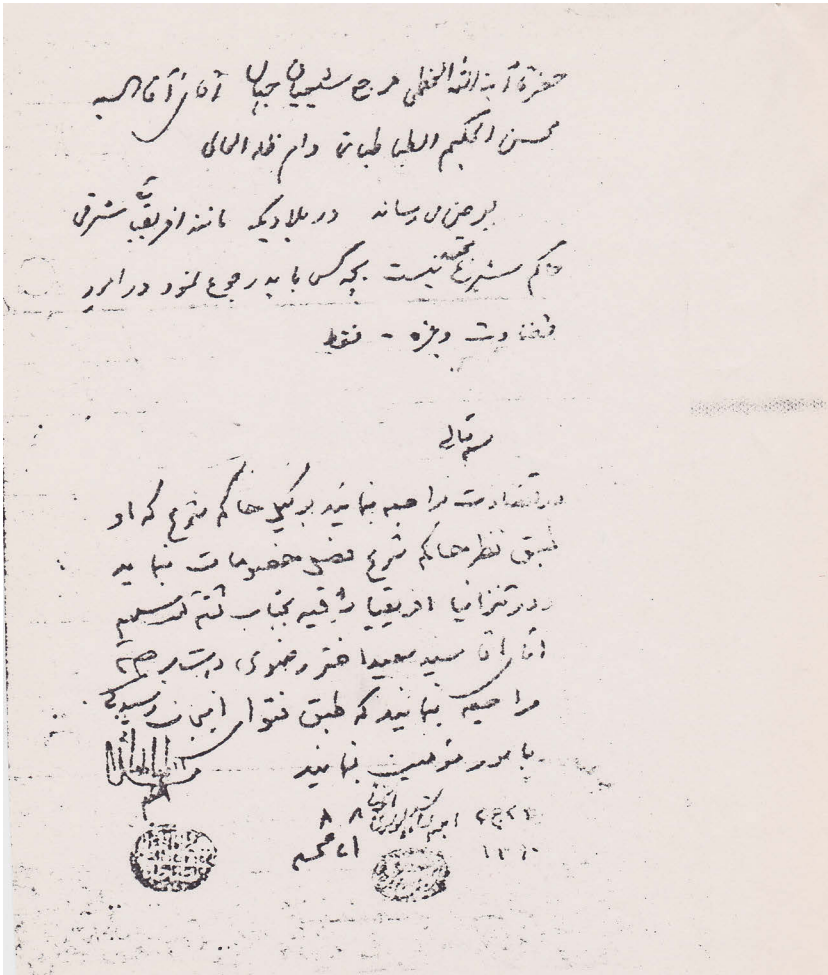 حضرة آیة الله العظمی مرجع شیعیان جهان آقای آقا السید
محسن الحکیم الطباطبائی دام ظله العالی
بعرض می رساند در بلادیکه مانند افریقیای شرقی
حاکم شرع نیست بچه کس باید رجوع نمود در امور
قضاوت وغیره - فقط
بسمه تعالی
در قضاوت مراجعه نمایند بوکیل حاکم شرع که او
طبق نظر حاکم شرع فصل خصومات نماید
ودر تنزانیا افریقیا شرقیه بجناب ثقة الاسلام
آقای آقا سید سعید اختر رضوی
مراجعه نمایند که طبق فتوای اینجانب رسیدگی
بامور مؤمنین نمایند